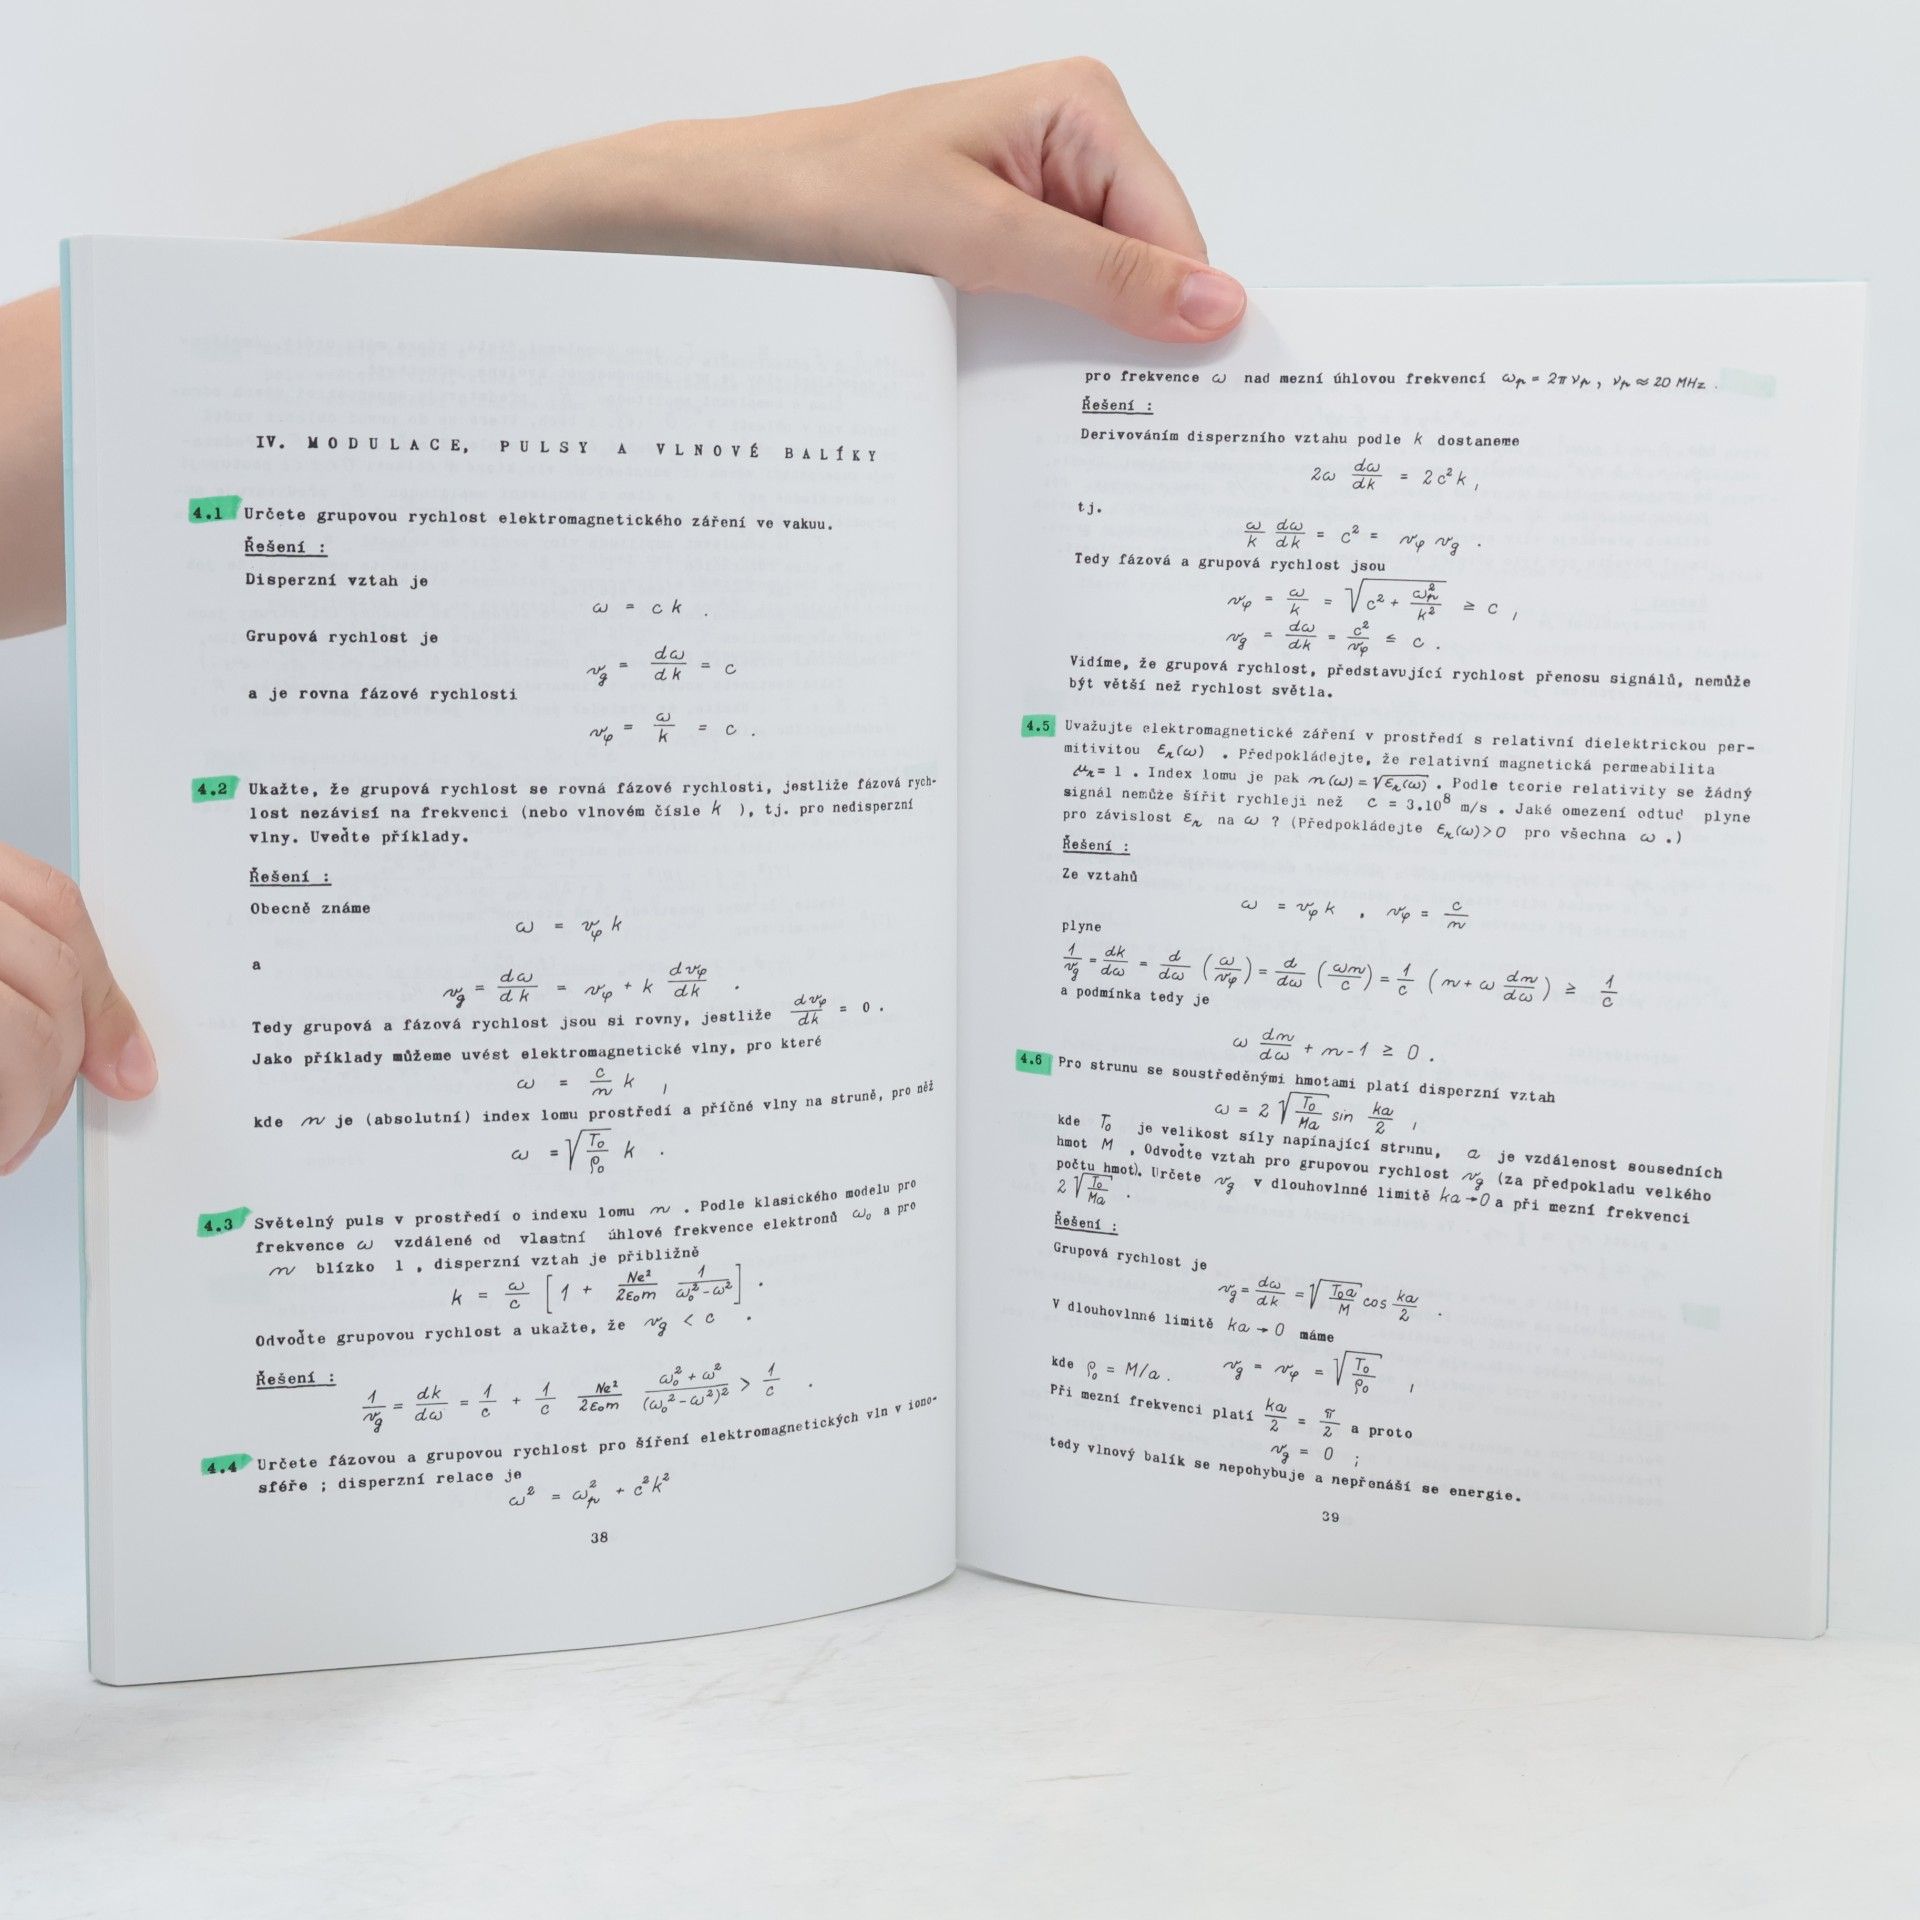 IV. MODULACE, PULSY A VLNOVÉ BALÍKY
4.1 Určete grupovou rychlost elektromagnetického záření ve vakuu.
Řešení :
Disperzní vztah je
ω = c k .
Grupová rychlost je
v_g = dω/dk = c
a je rovna fázové rychlosti
v_φ = ω/k = c .
4.2 Ukažte, že grupová rychlost se rovná fázové rychlosti, jestliže fázová rych-
lost nezávisí na frekvenci (nebo vlnovém čísle k ), tj. pro nedisperzní
vlny. Uveďte příklady.
Řešení :
Obecně známe
ω = v_φ k
a
v_g = dω/dk = v_φ + k dv_φ/dk .
Tedy grupová a fázová rychlost jsou si rovny, jestliže dv_φ/dk = 0 .
Jako příklady můžeme uvést elektromagnetické vlny, pro které
ω = c/n k ,
kde n je (absolutní) index lomu prostředí a příčné vlny na struně, pro něž
ω = √(T₀/ρ₀) k .
4.3 Světelný puls v prostředí o indexu lomu n . Podle klasického modelu pro
frekvence ω vzdálené od vlastní úhlové frekvence elektronů ω₀ a pro
n blízko 1 , disperzní vztah je přibližně
k = ω/c [ 1 + Ne²/2ε₀m 1/(ω₀² - ω²) ] .
Odvoďte grupovou rychlost a ukažte, že v_g < c .
Řešení :
1/v_g = dk/dω = 1/c + 1/c Ne²/2ε₀m (ω₀² + ω²)/(ω₀² - ω²)² > 1/c .
4.4 Určete fázovou a grupovou rychlost pro šíření elektromagnetických vln v iono-
sféře ; disperzní relace je
ω² = ω_p² + c²k²
38
pro frekvence ω nad mezní úhlovou frekvencí ω_p = 2π ν_p , ν_p ≈ 20 MHz .
Řešení :
Derivováním disperzního vztahu podle k dostaneme
2ω dω/dk = 2c²k ,
tj.
ω/k dω/dk = c² = v_φ v_g .
Tedy fázová a grupová rychlost jsou
v_φ = ω/k = √(c² + ω_p²/k²) ≥ c ,
v_g = dω/dk = c²/v_φ ≤ c .
Vidíme, že grupová rychlost, představující rychlost přenosu signálů, nemůže
být větší než rychlost světla.
4.5 Uvažujte elektromagnetické záření v prostředí s relativní dielektrickou per-
mitivitou ε_r(ω) . Předpokládejte, že relativní magnetická permeabilita
μ_r = 1 . Index lomu je pak n(ω) = √ε_r(ω) . Podle teorie relativity se žádný
signál nemůže šířit rychleji než c = 3.10⁸ m/s . Jaké omezení odtud plyne
pro závislost ε_r na ω ? (Předpokládejte ε_r(ω) > 0 pro všechna ω .)
Řešení :
Ze vztahů
ω = v_φ k , v_φ = c/n
plyne
1/v_g = dk/dω = d/dω (ω/v_φ) = d/dω (ωn/c) = 1/c (n + ω dn/dω) ≥ 1/c
a podmínka tedy je
ω dn/dω + n - 1 ≥ 0 .
4.6 Pro strunu se soustředěnými hmotami platí disperzní vztah
ω = 2 √(T₀/Ma) sin ka/2 ,
kde T₀ je velikost síly napínající strunu, a je vzdálenost sousedních
hmot M . Odvoďte vztah pro grupovou rychlost v_g (za předpokladu velkého
počtu hmot). Určete v_g v dlouhovlnné limitě ka → 0 a při mezní frekvenci
2 √(T₀/Ma) .
Řešení :
Grupová rychlost je
v_g = dω/dk = √(T₀a/M) cos ka/2 .
V dlouhovlnné limitě ka → 0 máme
v_g = v_φ = √(T₀/ρ₀) ,
kde ρ₀ = M/a .
Při mezní frekvenci platí ka/2 = π/2 a proto
v_g = 0 ;
tedy vlnový balík se nepohybuje a nepřenáší se energie.
39